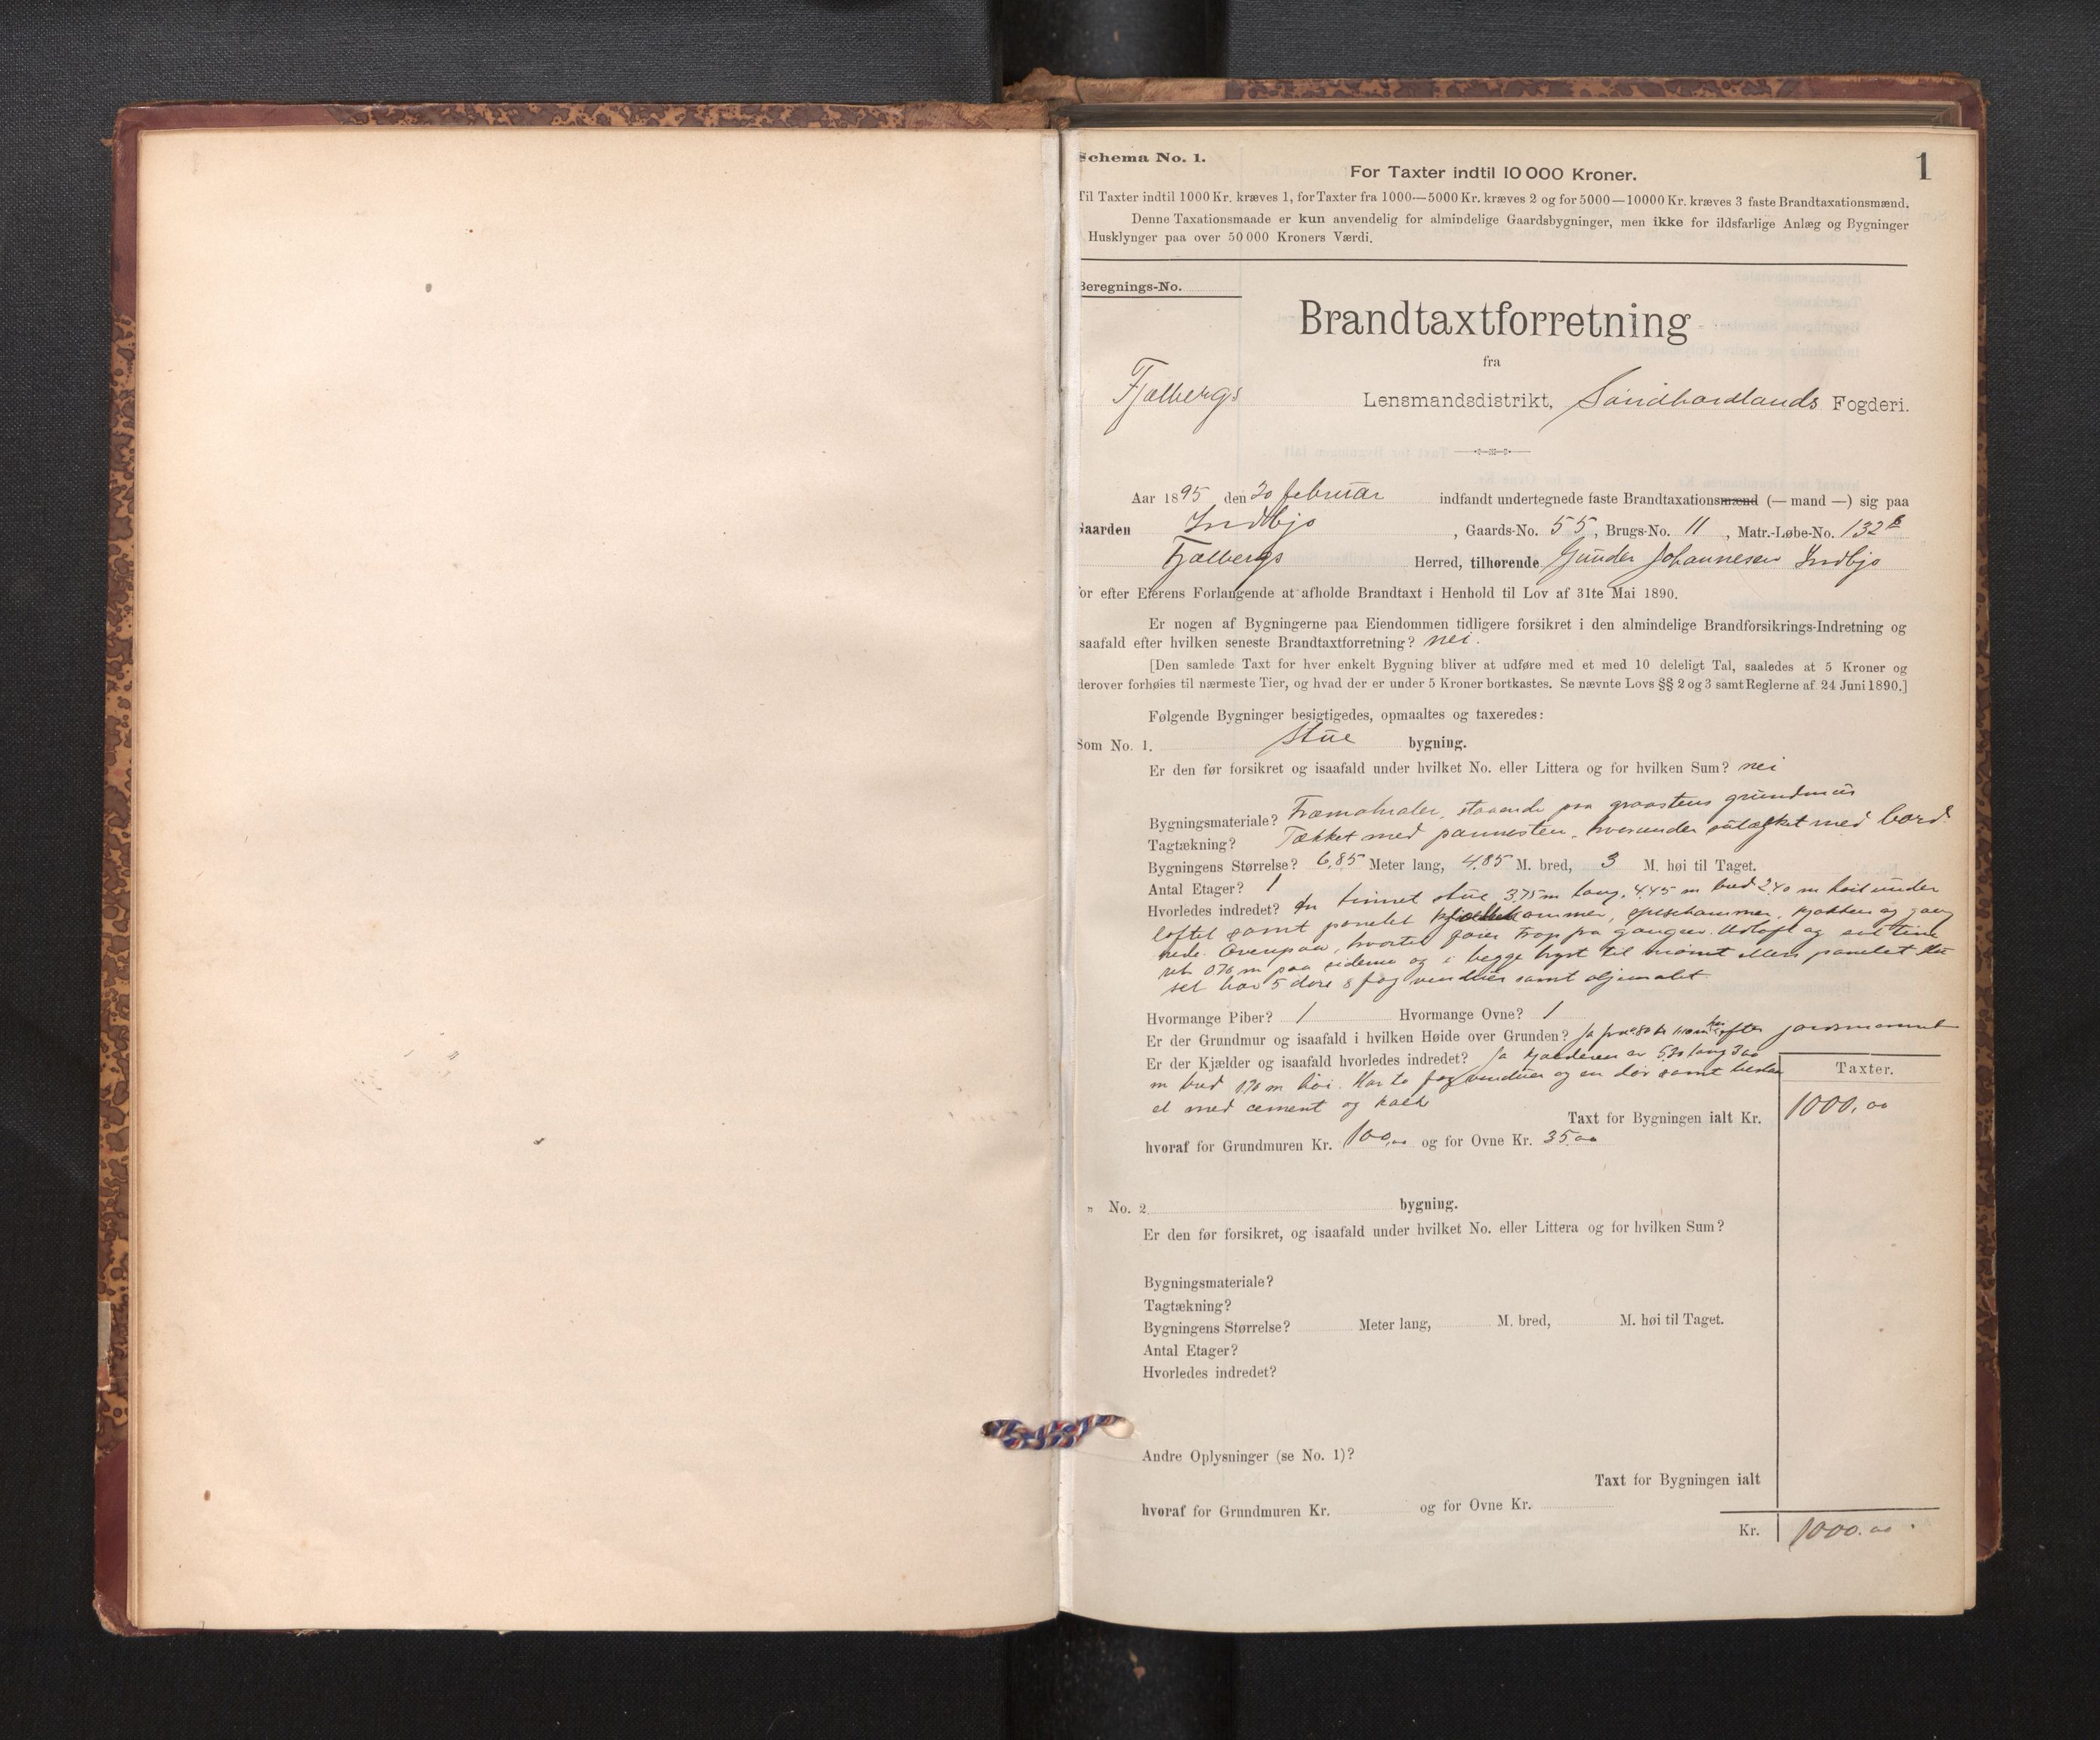 Schema No. 1.
1
For Taxter indtil 10 000 Kroner.
Til Taxter indtil 1000 Kr. kræves 1, for Taxter fra 1000—5000 Kr. kræves 2 og for 5000—10000 Kr. kræves 3 faste Brandtaxationsmænd.
Denne Taxationsmaade er kun anvendelig for almindelige Gaardsbygninger, men ikke for ildsfarlige Anlæg og Bygninger
Husklynger paa over 50 000 Kroners Værdi.
Beregnings-No.
Brandtaxtforretning
fra
Fjælbergs Lensmandsdistrikt, Søndhordlands Fogderi.
Aar 1895 den 20 februar indfandt undertegnede faste Brandtaxationsmænd (— mand —) sig paa
Gaarden Indbjo, Gaards-No. 55, Brugs-No. 11, Matr.-Løbe-No. 132
Fjælbergs Herred, tilhørende Gunder Johannesen Indbjo
for efter Eierens Forlangende at afholde Brandtaxt i Henhold til Lov af 31te Mai 1890.
Er nogen af Bygningerne paa Eiendommen tidligere forsikret i den almindelige Brandforsikrings-Indretning og
isaafald efter hvilken seneste Brandtaxtforretning? nei.
[Den samlede Taxt for hver enkelt Bygning bliver at udføre med et med 10 deleligt Tal, saaledes at 5 Kroner og
derover forhøies til nærmeste Tier, og hvad der er under 5 Kroner bortkastes. Se nævnte Lovs §§ 2 og 3 samt Reglerne af 24 Juni 1890.]
Følgende Bygninger besigtigedes, opmaaltes og taxeredes:
Som No. 1. Stue bygning.
Er den før forsikret og isaafald under hvilket No. eller Littera og for hvilken Sum? nei
Bygningsmateriale? Træmatrialer, staaende paa graastens grundmur
Tagtækning? Tækket med pannesten, hvorunder sutækket med bord.
Bygningens Størrelse? 6,85 Meter lang, 4,85 M. bred, 3 M. høi til Taget.
Antal Etager? 1
Hvorledes indredet? En timret stue 3,75 m lang, 4,45 m bred 2,40 m høit under
loftet samt panelet kammer, spisekammer, kjøkken og gang
nede. Ovenpaa, hvortil fører trap fra gangen
0,70 m paa siderne og i begge panelet
set har 5 døre 8 fag vinduer samt oljemalet
Hvormange Piber? 1 Hvormange Ovne? 1
Er der Grundmur og isaafald i hvilken Høide over Grunden? Ja fra 0,80 efter jordsmonnet
Er der Kjælder og isaafald hvorledes indredet? Ja kjælderen er 5,30 lang 3,00
m bred 1,70 m høi. Har to fag vinduer og en dør samt
et med cement og kalk
Taxter.
Taxt for Bygningen ialt Kr. 1000,00
hvoraf for Grundmuren Kr. 100,00 og for Ovne Kr. 35,00
" No. 2 bygning.
Er den før forsikret, og isaafald under hvilket No. eller Littera og for hvilken Sum?
Bygningsmateriale?
Tagtækning?
Bygningens Størrelse? Meter lang, M. bred, M. høi til Taget.
Antal Etager?
Hvorledes indredet?
Andre Oplysninger (se No. 1)?
Taxt for Bygningen ialt
hvoraf for Grundmuren Kr. og for Ovne Kr.
Kr. 1000.00